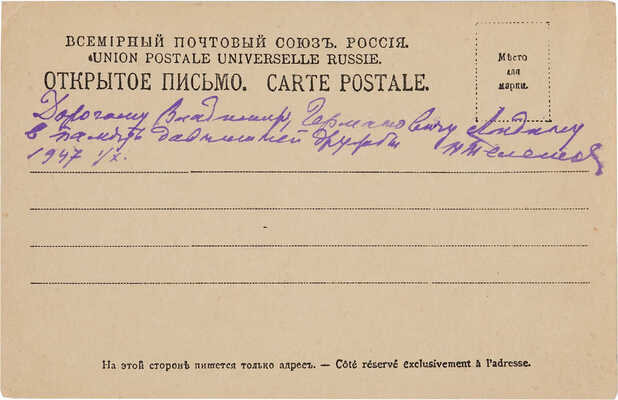 ВСЕМІРНЫЙ ПОЧТОВЫЙ СОЮЗЪ. РОССІЯ.
UNION POSTALE UNIVERSELLE RUSSIE.
ОТКРЫТОЕ ПИСЬМО. CARTE POSTALE.
Мѣсто
для
марки.
Дорогому Владимиру Германовичу Лидину
в память давнишней дружбы Н Телешов
1947
На этой сторонѣ пишется только адресъ. — Côté réservé exclusivement à l'adresse.